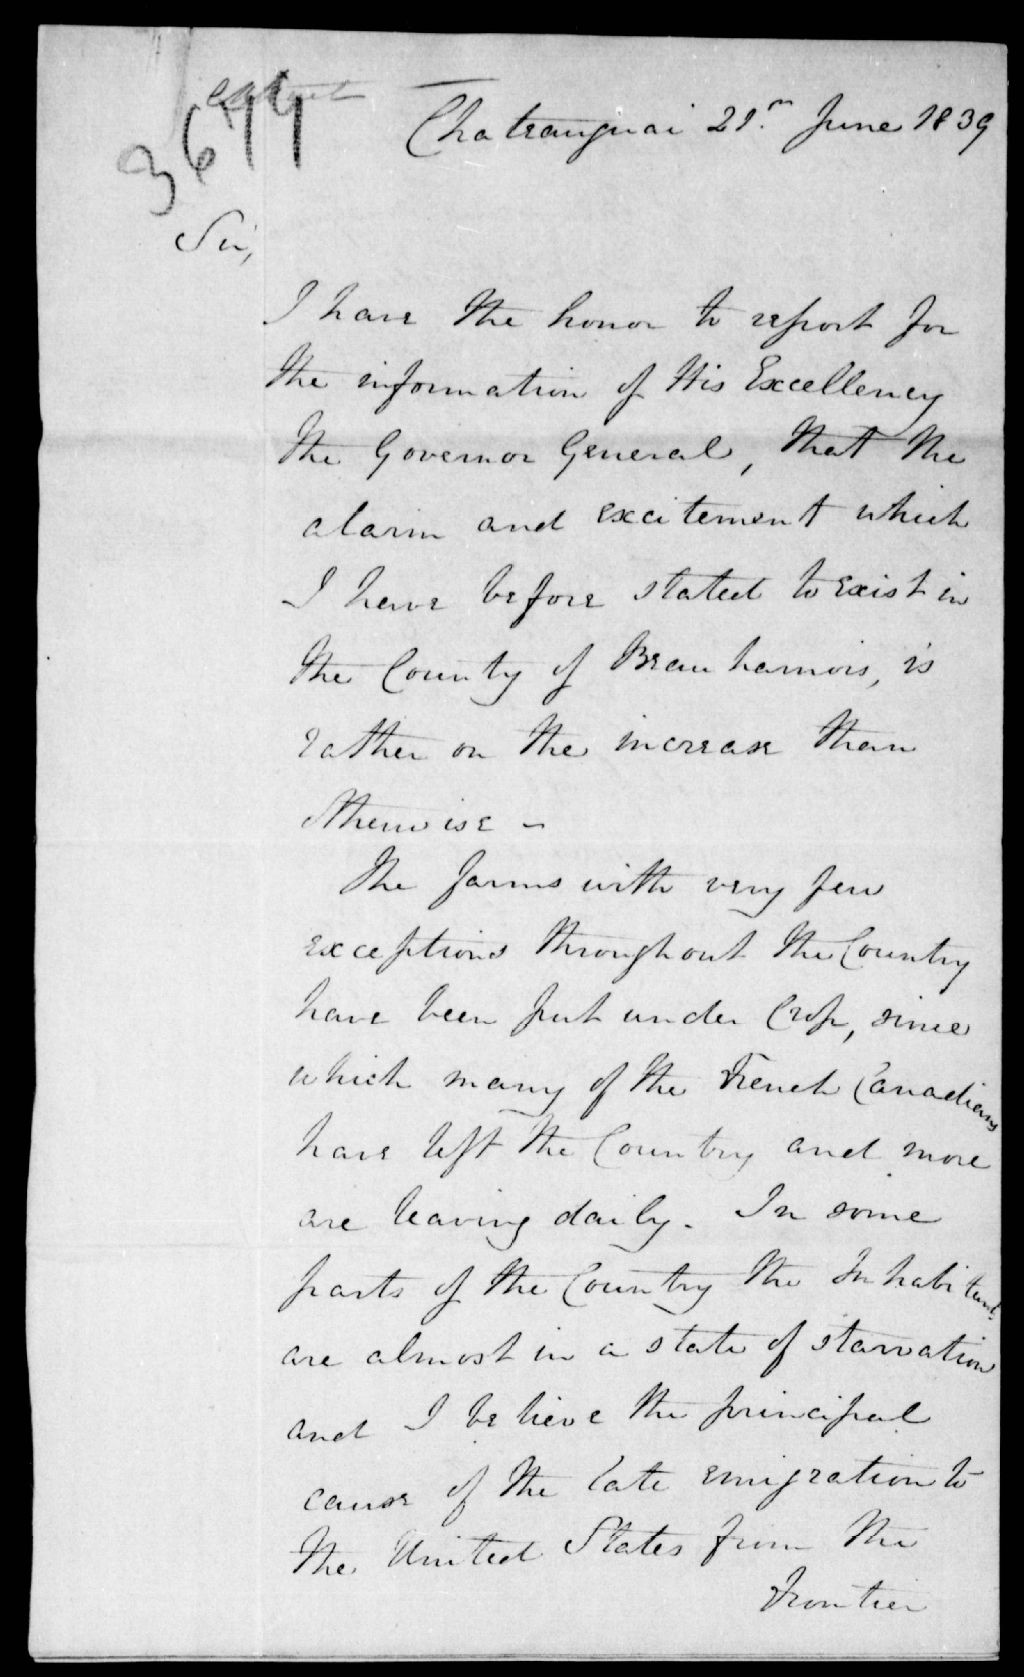 3677
Chateauguai 21st June 1839
Sir,
I have the honor to report for
the information of His Excellency
the Governor General, that the
alarm and excitement which
I have before stated to exist in
the County of Beauharnois, is
rather on the increase than
otherwise –
The farms with very few
exceptions throughout the Country
have been put under Crop, since
which many of the French Canadians
have left the Country and more
are leaving daily. In some
parts of the Country the Inhabitants
are almost in a state of starvation
and I believe the principal
cause of the late emigration to
the United States from the
Frontier